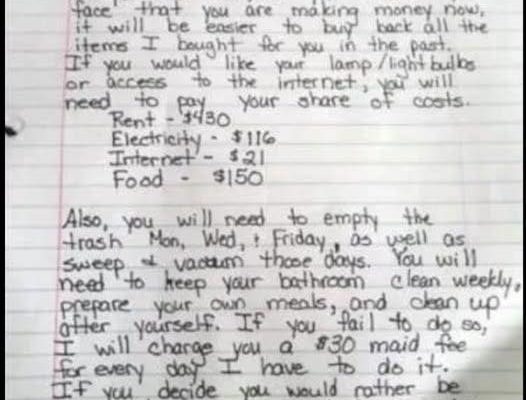 face" that you are making money now,
it will be easier to buy back all the
items I bought for you in the past.
If you would like your lamp/light bulbs
or access to the internet, you will
need to pay your share of costs.
Rent - $430
Electricity - $116
Internet - $21
Food - $150
Also, you will need to empty the
trash Mon, Wed, & Friday, as well as
sweep & vacuum those days. You will
need to keep your bathroom clean weekly,
prepare your own meals, and clean up
after yourself. If you fail to do so,
I will charge you a $30 maid fee
for every day I have to do it.
If you decide you would rather be